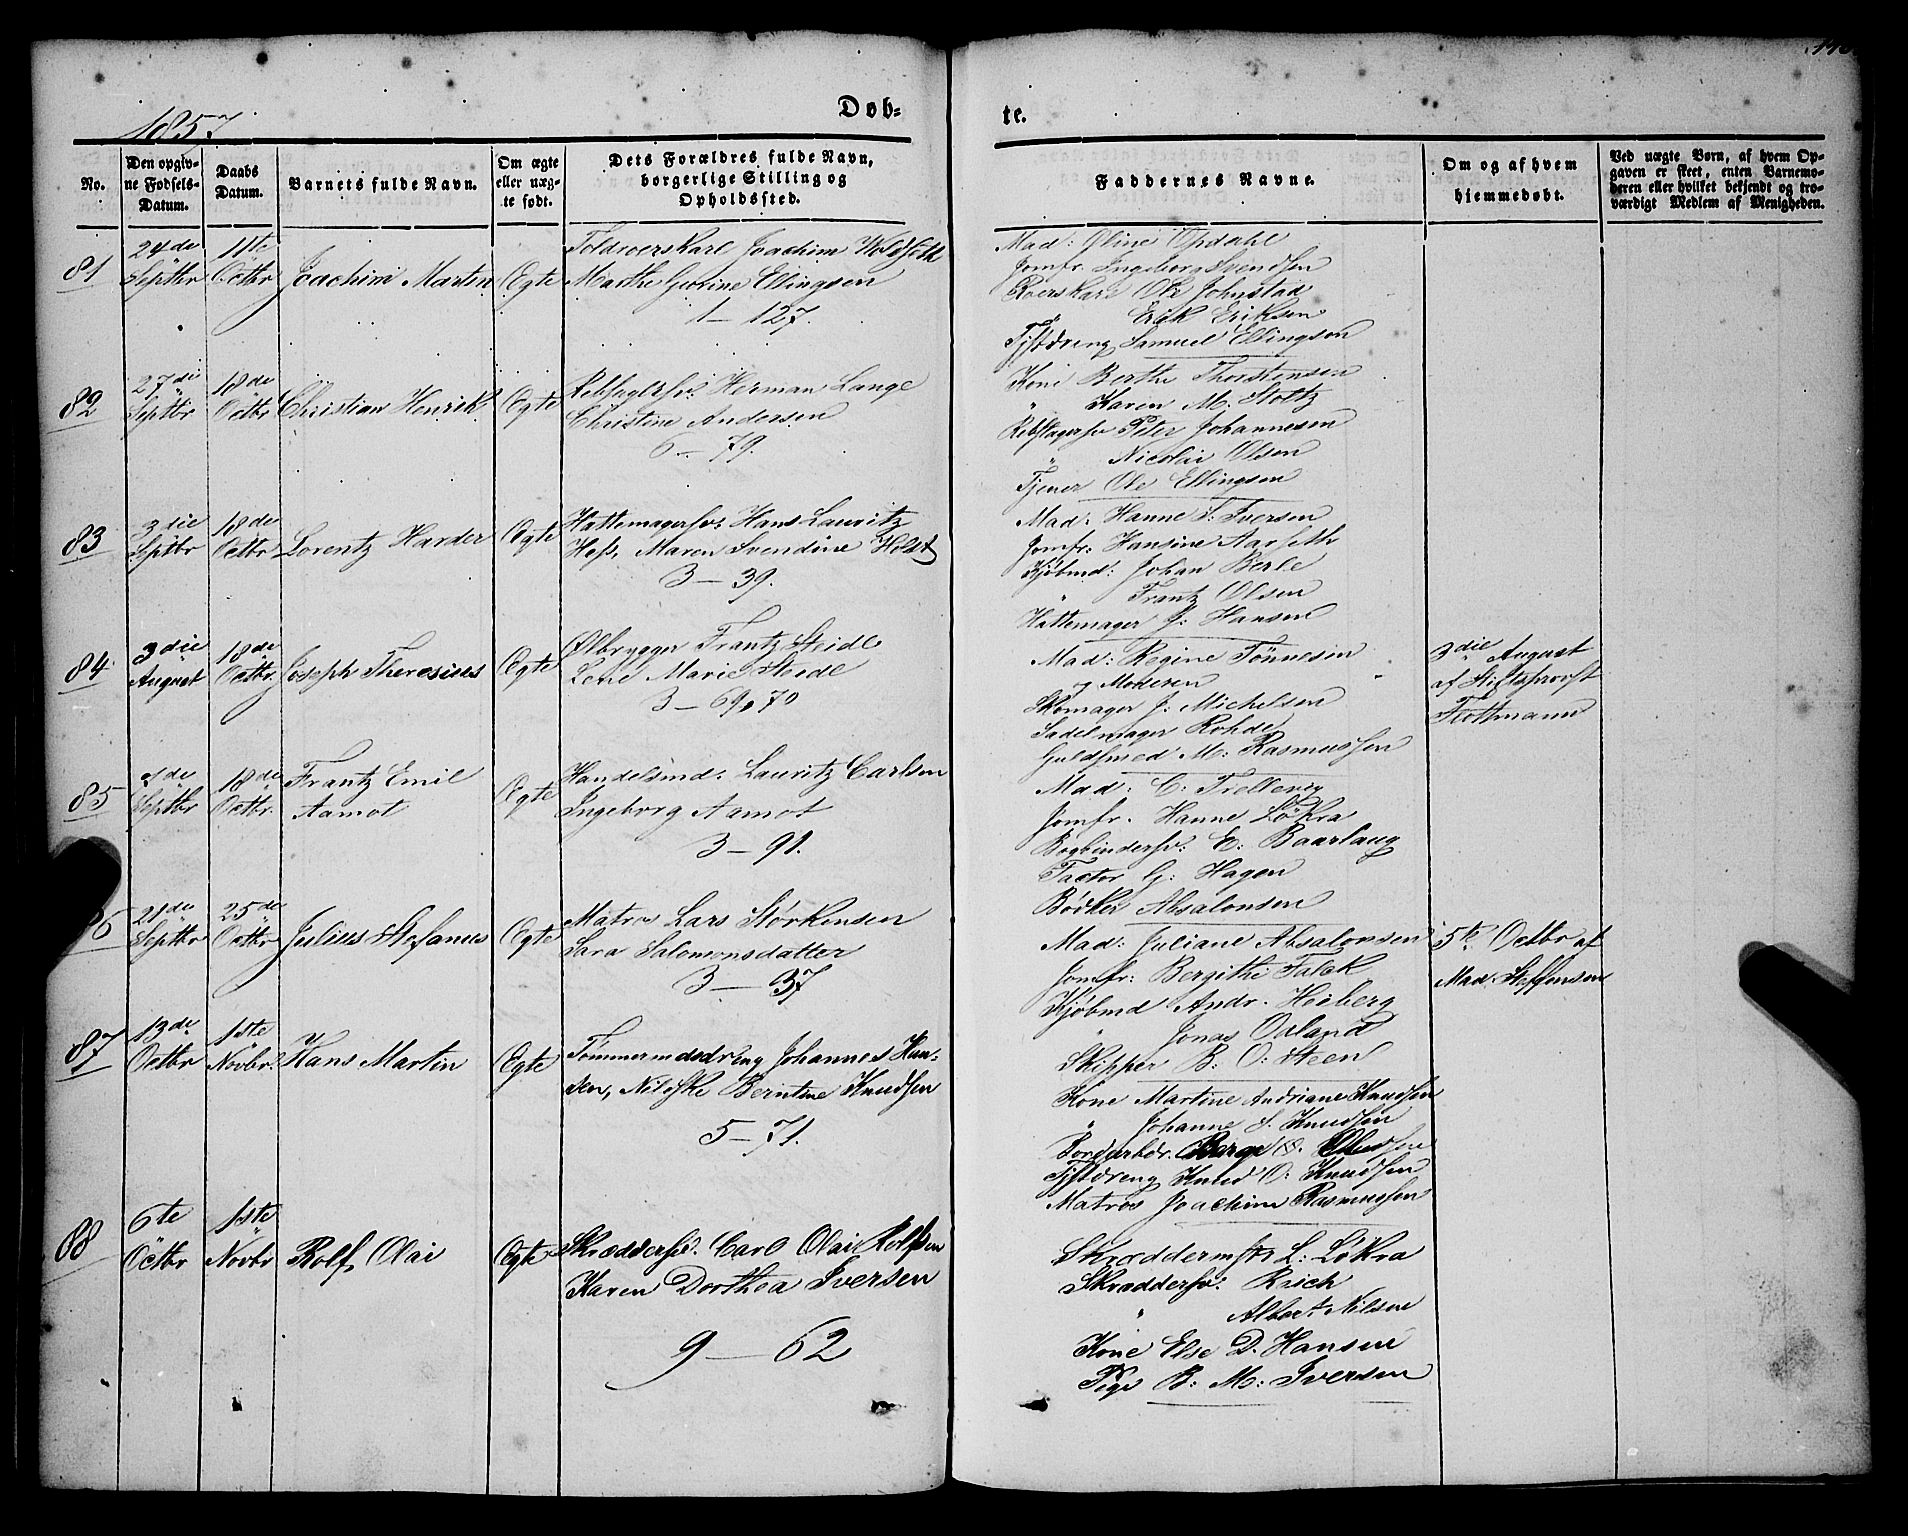 1857
Døb=
te.
No.
Den opgiv-
ne Fødsels-
Datum.
Daabs
Datum.
Barnets fulde Navn.
Om ægte
eller uæg-
te født.
Dets Forældres fulde Navn,
borgerlige Stilling og
Opholdssted.
Faddernes Navne.
Om og af hvem
hjemmedøbt.
Ved uægte Børn, af hvem Op-
gaven er skeet, enten Barnemo-
deren eller hvilket bekjendt og tro-
værdigt Medlem af Menigheden.
81
24de
Septbr
11te
Octbr
Joachim Martin
Ægte
Toldroerskarl Joachim
Marthe Gurine Ellingsen
1 — 127.
Mad: Oline Opdahl
Jomfr. Ingeborg Svendsen
Roerskarl Ole Johnstad
Erik Eriksen
Tjstdreng Samuel Ellingson
82
27de
Septbr
18de
Octbr
Christian Henrik
Ægte
Rebslagersv: Herman Lange
Christine Andersen
6 — 79.
Kone Berthe Thorstensen
" Karen M. Stoltz
Rebslagersv Peter Johannesen
" Nicolai Olsen
Tjener Ole Ellingsen
83
3die
Septbr
18de
Octbr
Lorentz Harder
Ægte
Hattemagersv: Hans Lauritz
Hess, Maren Svendine Holst
3 — 39.
Mad: Hanne S. Iversen
Jomfr: Hansine Aarseth
Kjøbmd: Johan Berle
" Frantz Olsen
Hattemager J: Hansen
84
3die
August
18de
Octbr.
Joseph Theresius
Ægte
Ølbrygger Frantz Steidl
Lene Marie Steidl
3 — 69, 70
Mad: Regine Tönnesen
og Moderen
Skomager J: Michelsen
Sadelmager Rohde
Guldsmed M: Rasmussen
3die August
af Stiftsprovst
Flottmann
85
1de
Septbr
18de
Octbr.
Frantz Emil
Aamot
Ægte
Handelsmd. Lauritz Carlsen
Ingeborg Aamot
3 — 91.
Mad: C: Trellevig
Jomfr. Hanne Løkra
Bogbindersv: E: Baarlaug
Factor G: Hagen
Bødker Absalonsen
6
21de
Septbr
25de
Octbr
Julius Stefanus
Ægte
Matros Lars Størkensen
Sara Salomonsdatter
3 — 37
Mad: Juliane Absalonsen
Jomfr: Bergithe Falck
Kjøbmd Andr. Heiberg
" Jonas
Skipper B. O: Steen
5te Octbr af
Mad: Steffensen
87
13de
Octbr
1ste
Novbr.
Hans Martin
Ægte
Tømmermdsdreng Johannes Han-
sen, Berntine Knudsen
5 — 71.
Kone Martine Andriane Knudsen
" Johanne S. Knudsen
Tjstdreng Knud O: Knudsen
Matros Joachim Rasmussen
88
6te
Octbr
1ste
Novbr
Rolf Olai
Ægte
Skræddersv. Carl Olai Rolfsen
Karen Dorthea Iversen
9 — 62
Skræddermstr L: Løkra
Skræddersv:
" Albert Nilsen
Kone Else D. Hansen
Pige B: M: Iversen